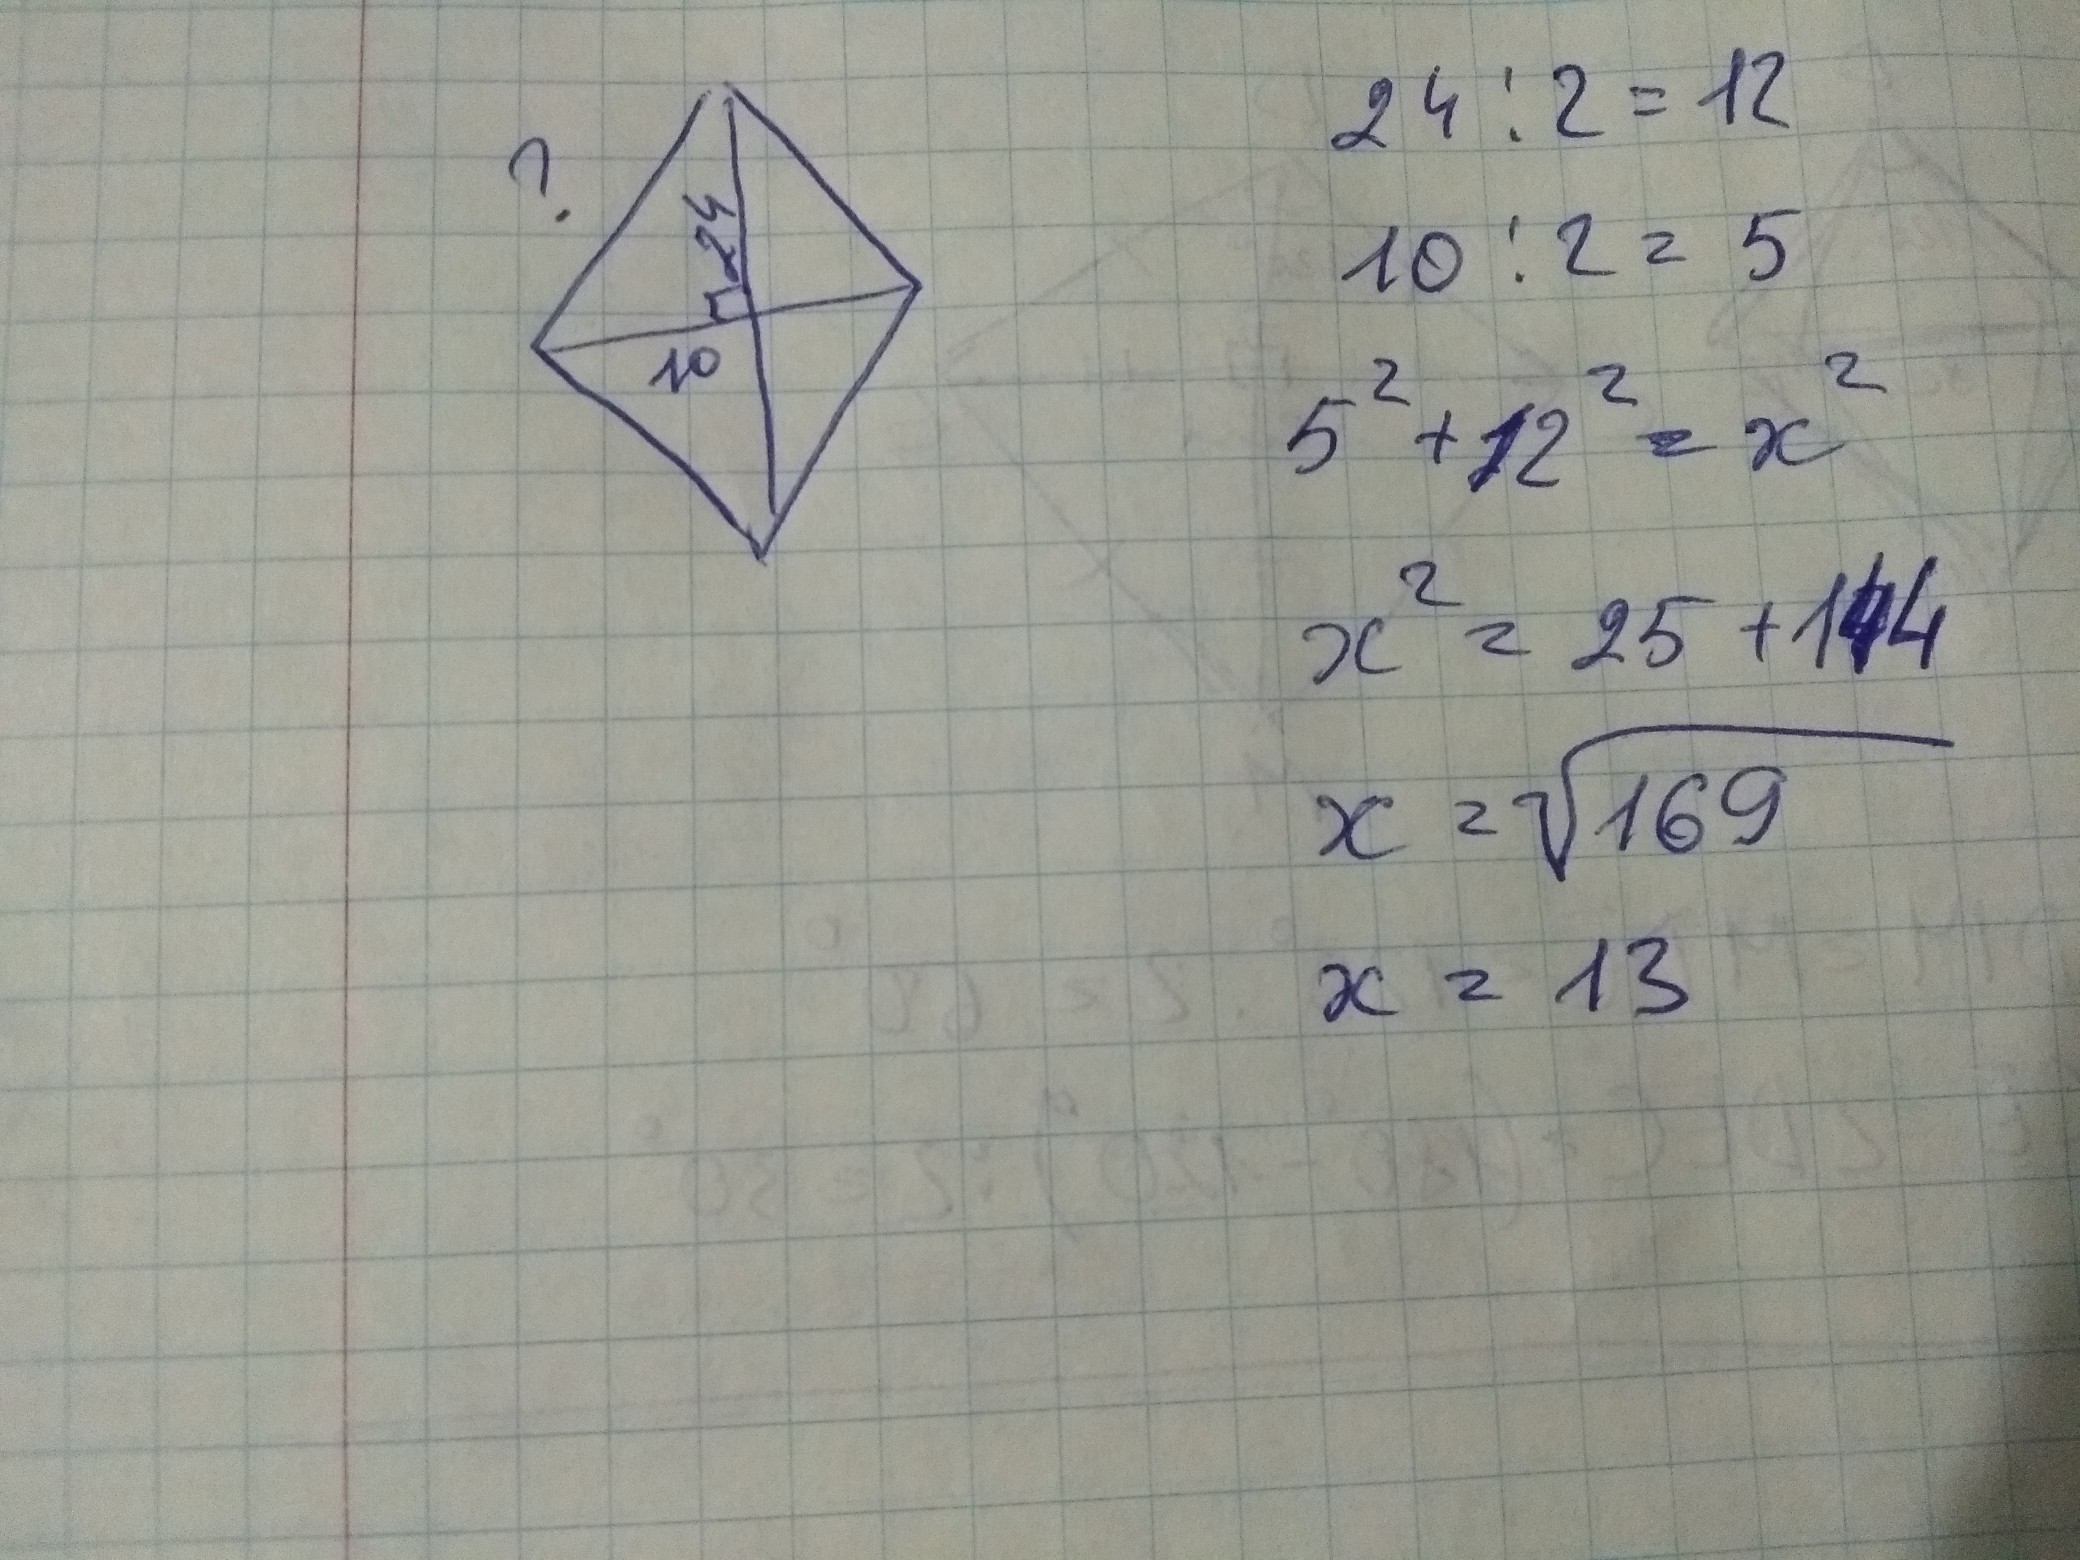 ?
24
10
24 : 2 = 12
10 : 2 = 5
5² + 12² = x²
x² = 25 + 144
x = √169
x = 13